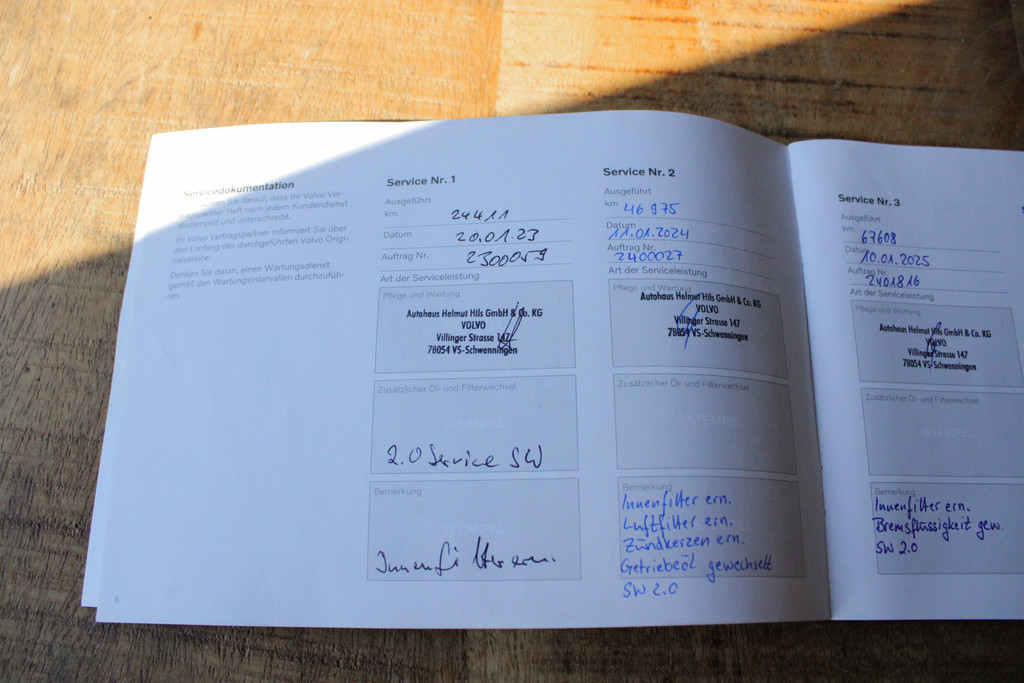 Servicedokumentation
Sie darauf, dass Ihr Volvo Ver-
tragspartner Heft nach jedem Kundendienst
abstempelt und unterschreibt.
Ihr Volvo Vertragspartner informiert Sie über
den Umfang des durchgeführten Volvo Origi-
nalservice.
Denken Sie daran, einen Wartungsdienst
gemäß den Wartungsintervallen durchzufüh-
ren.
6
Service Nr. 1
Ausgeführt
km 24411
Datum 20.01.23
Auftrag Nr. 2300059
Art der Serviceleistung
Pflege und Wartung
Autohaus Helmut Hils GmbH & Co. KG
VOLVO
Villinger Strasse 147
78054 VS-Schwenningen
Zusätzlicher Öl- und Filterwechsel
STEMPEL
2.0 Service SW
Bemerkung
STEMPEL
Innenfilter ern.
Service Nr. 2
Ausgeführt
km 46 975
Datum 11.01.2024
Auftrag Nr. 2400027
Art der Serviceleistung
Pflege und Wartung
Autohaus Helmut Hils GmbH & Co. KG
VOLVO
Villinger Strasse 147
78054 VS-Schwenningen
Zusätzlicher Öl- und Filterwechsel
STEMPEL
Bemerkung
Innenfilter ern.
Luftfilter ern.
Zündkerzen ern.
Getriebeöl gewechselt
SW 2.0
Service Nr. 3
Ausgeführt
km 67608
Datum 10.01.2025
Auftrag Nr. 2401816
Art der Serviceleistung
Pflege und Wartung
Autohaus Helmut Hils GmbH & Co. KG
VOLVO
Villinger Strasse 147
78054 VS-Schwenningen
Zusätzlicher Öl- und Filterwechsel
STEMPEL
Bemerkung
Innenfilter ern.
Bremsflüssigkeit gew.
SW 2.0